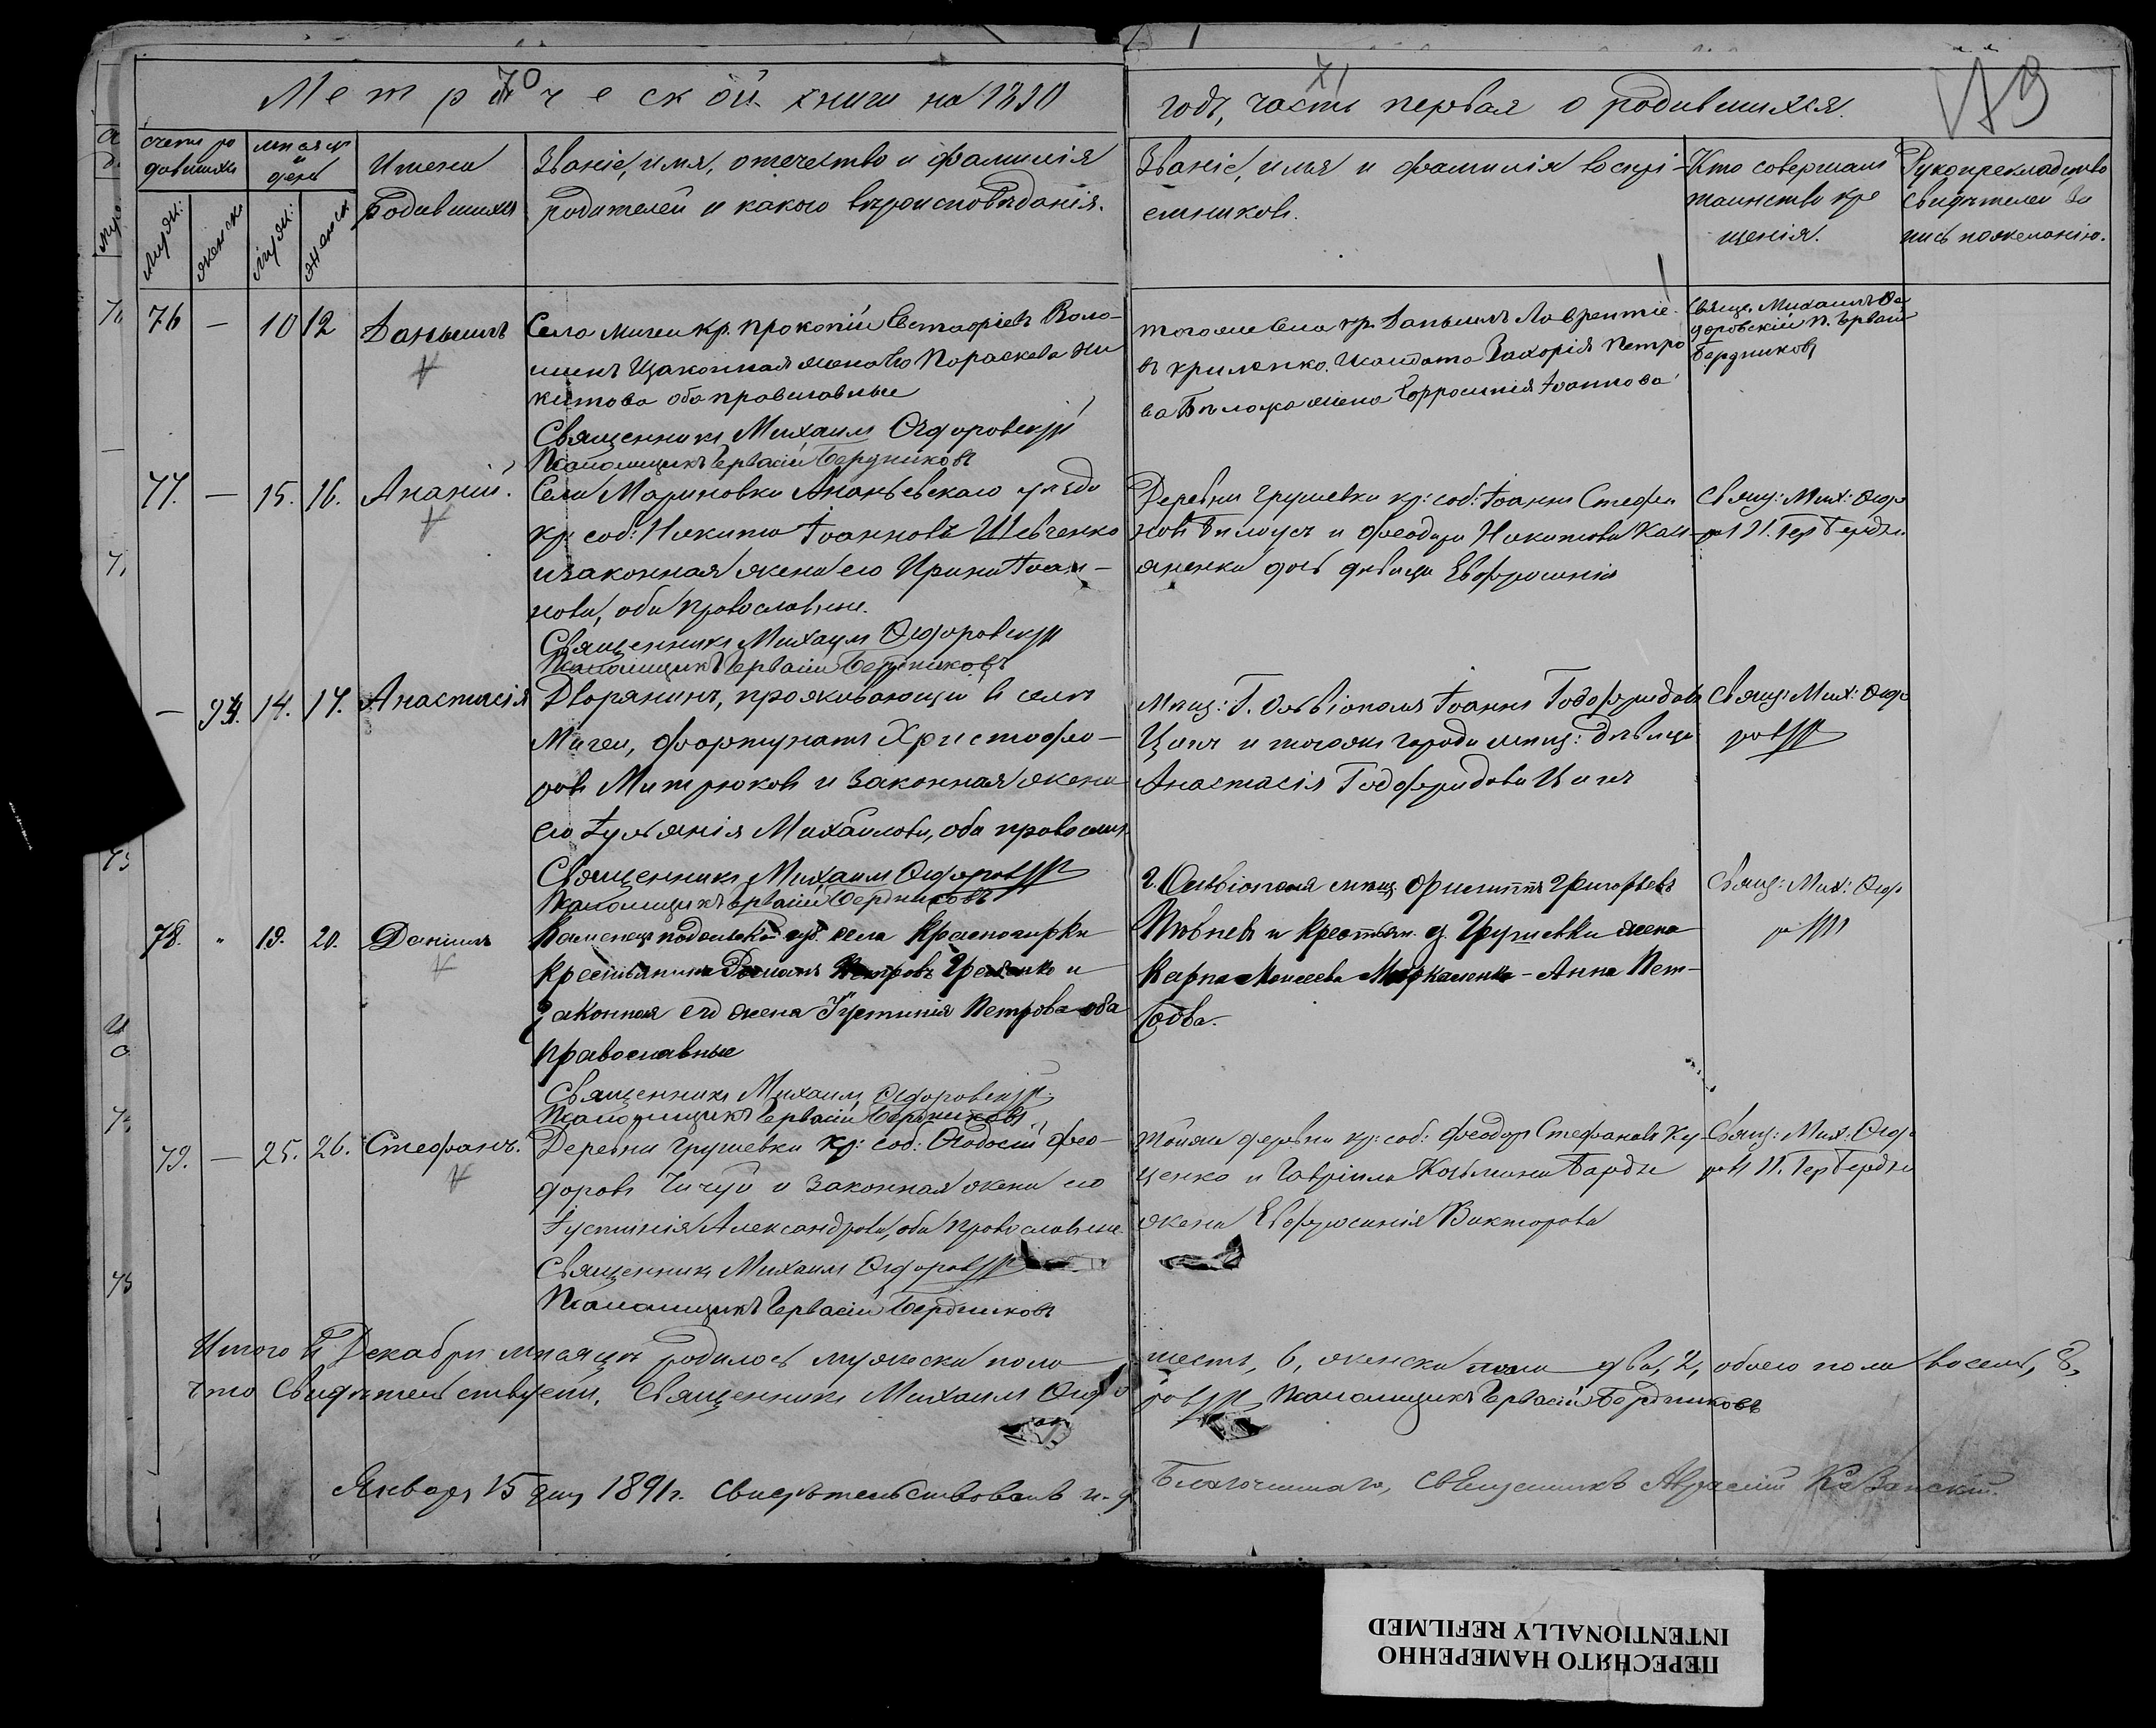 70
Метрической книги на 1890
71
годъ, часть первая о родившихся.
счетъ ро
дившихся
мѣсяцъ
и
день
Имена
Родившихся
Званіе, имя, отечество и фамилія
родителей и какого вѣроисповѣданія.
Званіе, имя и фамилія воспрі-
емниковъ.
Кто совершалъ
таинство кре
щенія.
Рукоприкладство
свидѣтелей за
пись по желанію.
муж:
женск
муж:
женск
76 — 10 12 Даніилъ
Село Мигеи кр. Прокопій Евстафіевъ Воло-
шинъ и законная жена его Параскева Ни
китова оба православные
Священникъ Михаилъ Ѳедоровскій
Псаломщикъ Гервасій Бердниковъ
тогоже села кр. Даніилъ Лаврентіе-
въ Захарія Петро
ва жена Іоаннова
Свяще. Михаилъ Ѳе
доровскій П. Гервасій
Бердниковъ
77. — 15. 16. Ананій.
Села Мариновки Ананьевскаго уѣзда
кр: соб: Никита Іоанновъ Шевченко
и законная жена его Ирина Іоан-
нова, оба православные.
Священникъ Михаилъ Ѳедоровскій
Псаломщикъ Гервасій Бердниковъ
Деревни Грушевки кр: соб: Іоаннъ Стефа
новъ Билоусъ и Феодора Никитова
дочь дѣвица Евфросинія
Свящ: Мих: Ѳедо
ров П. Гер Бердн
— 94. 14. 17. Анастасія
Дворянинъ, проживающій въ селѣ
Мигеи, Фортунатъ Христофо-
ровъ Митрюковъ и законная жена
его Іуліанія Михайлова, оба православ.
Священникъ Михаилъ Ѳедоров
Псаломщикъ Гервасій Бердниковъ
Мѣщ: Г. Ольвіополя Іоаннъ Годофридовъ
Ципъ и тогоже города мѣщ: дѣвица
Анастасія Годофридова Ципъ
Свящ: Мих: Ѳедо
ров
78. " 19. 20. Даніилъ
Каменецъ подольской губ. села Красногирки
крестьянинъ Романъ Петровъ и
законная его жена Іустинія Петрова оба
православные
Священникъ Михаилъ Ѳедоровскій
Псаломщикъ Гервасій Бердниковъ
г. Ольвіополя мѣщ. Филиппъ Григорьевъ
Пѣвневъ и крестьян. д. Грушевки жена
Карпа Моисеева - Анна Пет-
рова.
Свящ: Мих: Ѳедо
ро
79. — 25. 26. Стефанъ.
Деревни Грушевки кр: соб: Ѳеодосій Фео-
доровъ Чичуй и законная жена его
Іустинія Александрова, оба православные.
Священникъ Михаилъ Ѳедоров
Псаломщикъ Гервасій Бердниковъ
тойже деревни кр: соб: Феодоръ Стефановъ Ку-
ценко и Гавріила Козьмина Барды
жена Евфросинія Викторова
Свящ: Мих: Ѳедо
ров П. Гер Бердн
Итого въ Декабрѣ мѣсяцѣ родилось мужеска пола шесть, 6, женска пола два, 2, обоего пола восемь, 8,
что свидѣтельствуемъ. Священникъ Михаилъ Ѳедоров Псаломщикъ Гервасій Бердниковъ
Января 15 дня 1891 г. свидѣтельствовалъ и. д. Благочиннаго, священникъ Казанскій.
ПЕРЕСНЯТО НАМЕРЕННО
INTENTIONALLY REFILMED